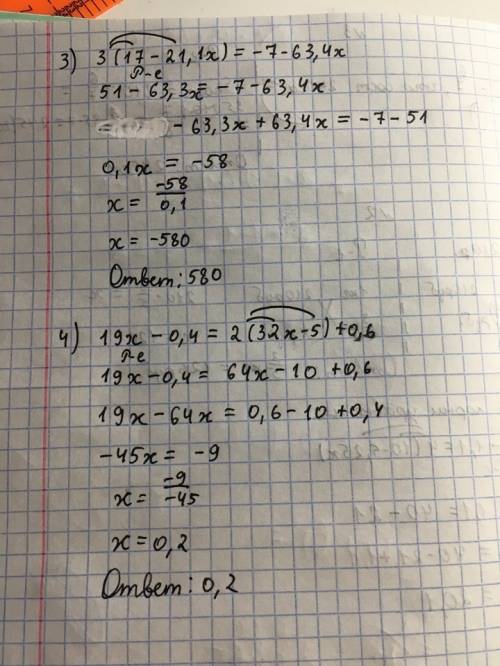 3) 3(17 - 21,1x) = -7 - 63,4x
Р-е
51 - 63,3x = -7 - 63,4x
= - 63,3x + 63,4x = -7 - 51
0,1x = -58
x = -58/0,1
x = -580
Ответ: 580
4) 19x - 0,4 = 2(32x - 5) + 0,6
Р-е
19x - 0,4 = 64x - 10 + 0,6
19x - 64x = 0,6 - 10 + 0,4
-45x = -9
x = -9/-45
x = 0,2
Ответ: 0,2